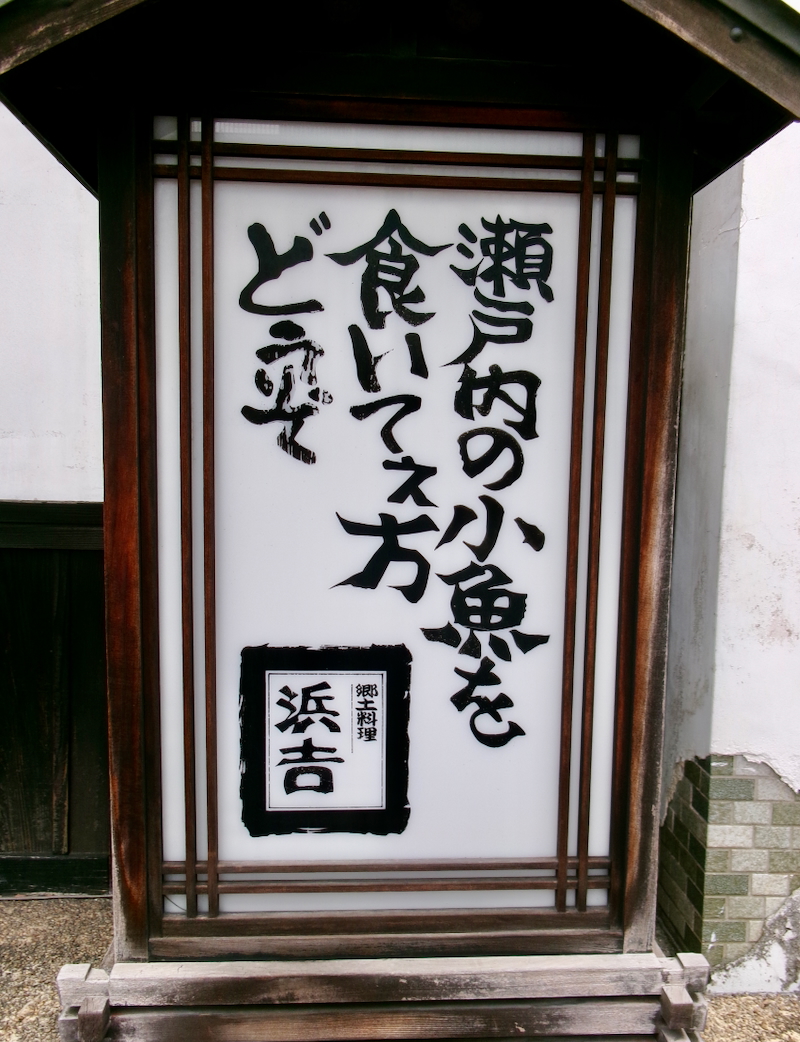 瀬戸内の小魚を
食いてぇ方
ど立て
郷土料理
浜吉